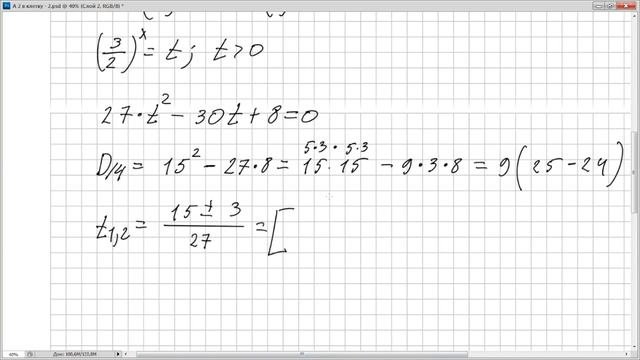 А 2 в клетку - 2.psd @ 40% (Слой 2, RGB/8) *
(3/2)^x = t; t>0
27·t² − 30t + 8 = 0
5·3 · 5·3
D/4 = 15² − 27·8 = 15·15 − 9·3·8 = 9(25−24)
t1,2 = (15 ± 3)/27 = [
40%
Док: 100,6M/122,8M